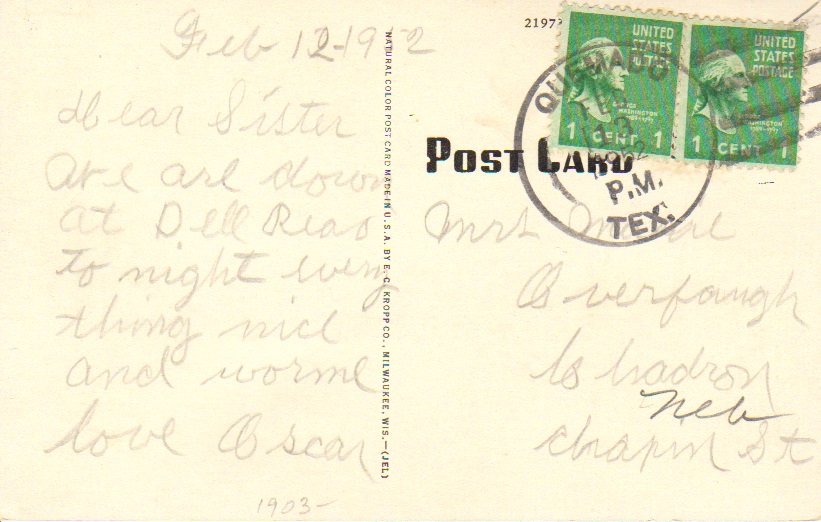 Feb 12-1952
Dear Sister
We are down
at Dell Reao
to night every
thing nice
and worme
love Oscar
1903-
NATURAL COLOR POST CARD MADE IN U.S.A. BY E. C. KROPP CO., MILWAUKEE, WIS.—(JEL)
2197
UNITED
STATES
POSTAGE
GEORGE
WASHINGTON
1789-1797
1 CENT 1
UNITED
STATES
POSTAGE
WASHINGTON
1 CENT 1
QUEMADO
P.M.
TEX.
POST CARD
Mrs
Overpaugh
Chadron
Neb
chapin St